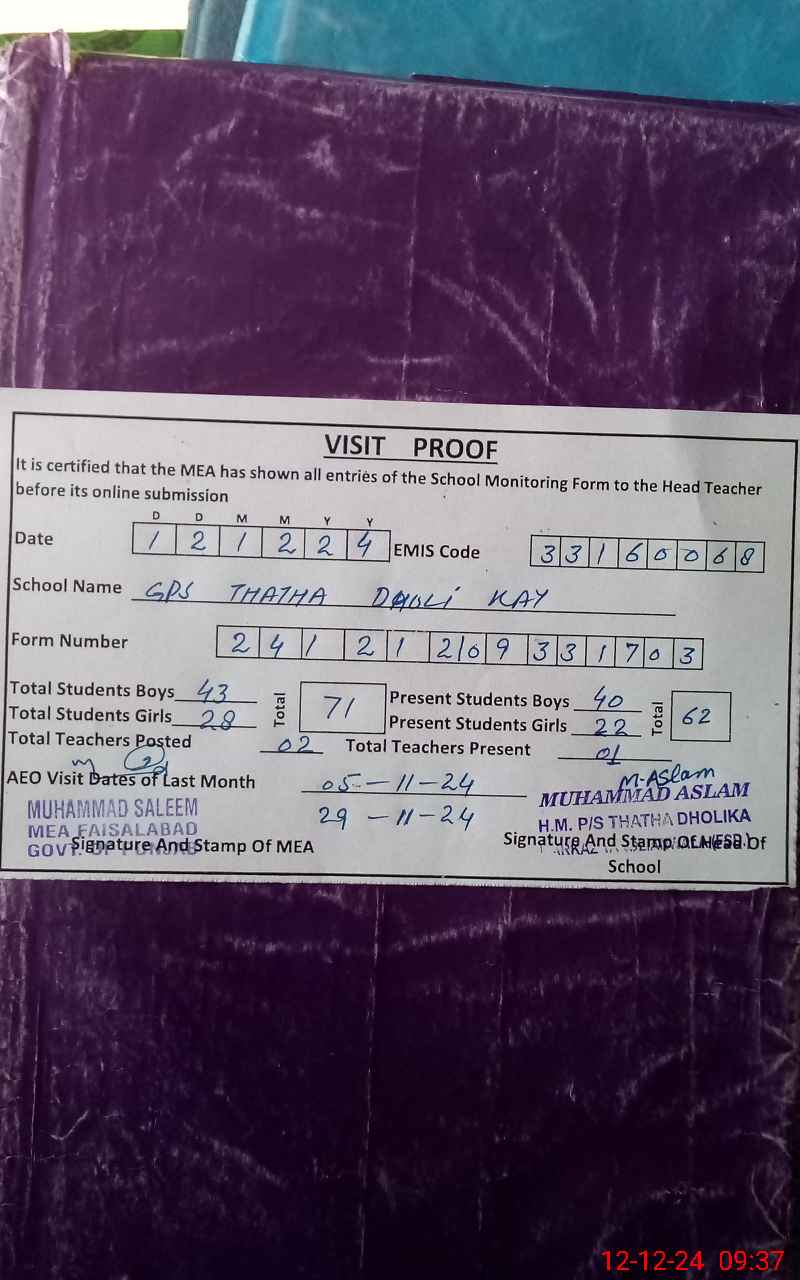 VISIT PROOF
It is certified that the MEA has shown all entries of the School Monitoring Form to the Head Teacher
before its online submission
D D M M Y Y
Date 1 2 1 2 2 4 EMIS Code 3 3 1 6 0 0 6 8
School Name GPS THATHA DHOLI KAY
Form Number 2 4 1 2 1 2 0 9 3 3 1 7 0 3
Total Students Boys 43 Total 71 Present Students Boys 40 Total 62
Total Students Girls 28 Present Students Girls 22
Total Teachers Posted 02 Total Teachers Present 01
AEO Visit Dates of Last Month 05-11-24 M-Aslam
29-11-24
MUHAMMAD SALEEM
MEA FAISALABAD
GOVT. OF PUNJAB
Signature And Stamp Of MEA
MUHAMMAD ASLAM
H.M. P/S THATHA DHOLIKA
(FSD.)
Signature And Stamp Of Head Of
School
12-12-24 09:37